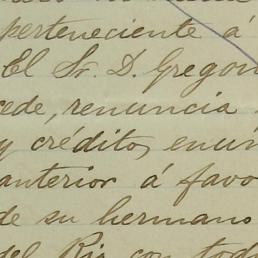 perteneciente á
El Sr. D. Grego
cede, renuncia
y créditos, enun
anterior á favo
de su hermano
del Rio con tod